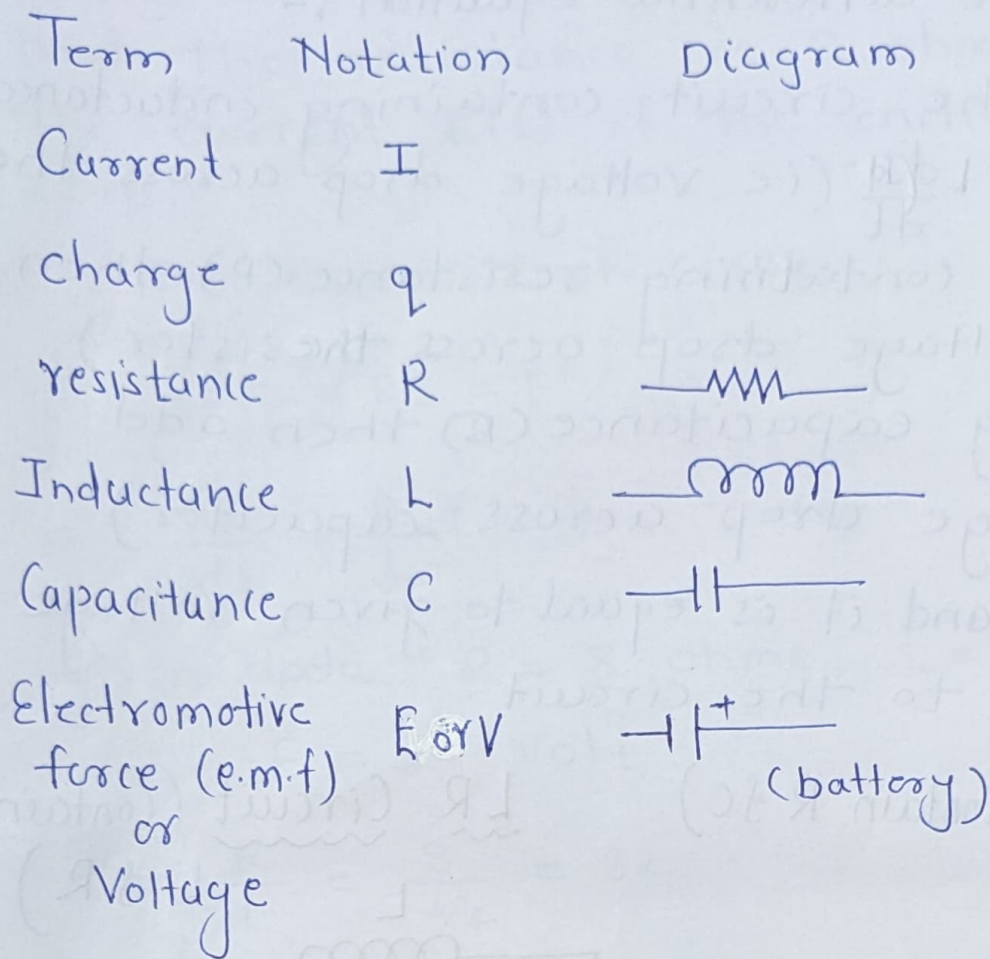 Term Notation Diagram
Current I
charge q
resistance R
Inductance L
Capacitance C
Electromotive E or V +
force (e.m.f) (battery)
or
Voltage